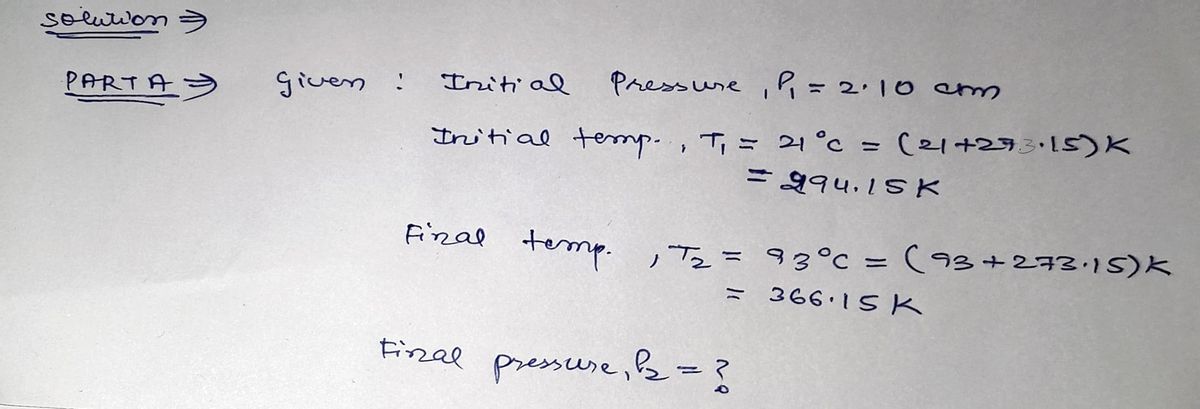 Solution ⇒
PART A ⇒ Given : Initial Pressure, P₁ = 2.10 atm
Initial temp., T₁ = 21°C = (21+273.15)K
= 294.15K
Final temp., T₂ = 93°C = (93+273.15)K
= 366.15K
Final pressure, P₂ = ?